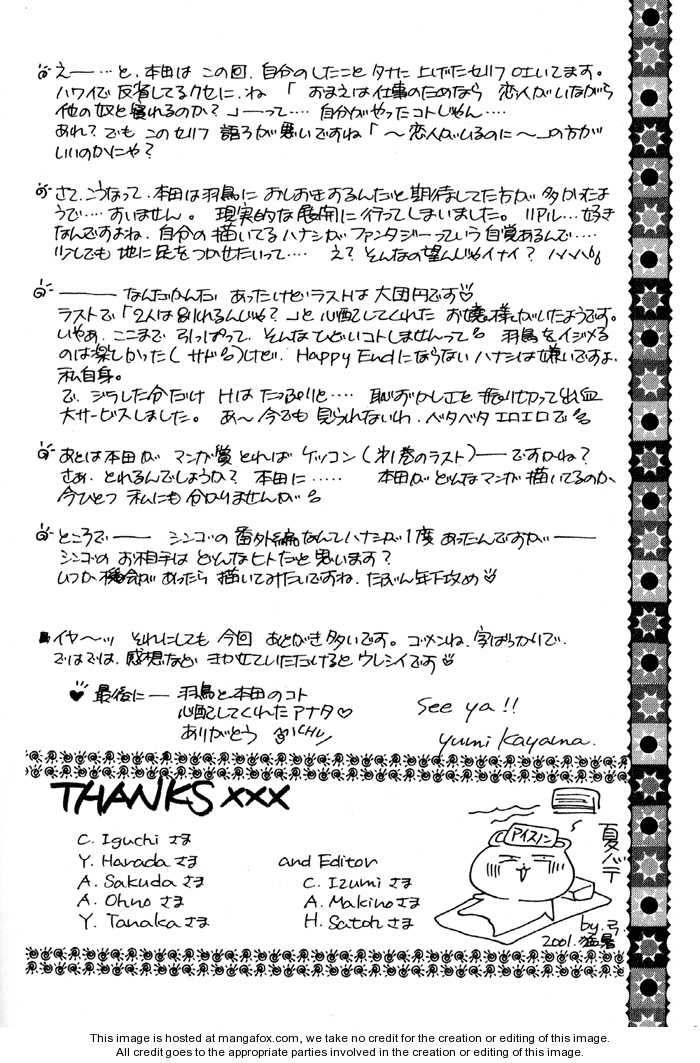 えー…と、本田は この回、自分のしたこと タナに 上げたセリフ 吐いてます。
ハワイで 反省してるクセに、ね 「おまえは仕事のためなら 恋人がいながら
他の奴と寝れるのか？」―って…. 自分がやったコトじゃん….
あれ？ でも このセリフ 語ろが悪いですね「〜恋人がいるのに〜」の方が
いいのかにゃ？
さて、こうなって、本田は羽鳥に おしおきするんだと 期待してた方が 多かったよ
うで…. すいません。 現実的な展開に行ってしまいました。リアル…好き
なんですよね、自分の描いてるハナシが ファンタジーっていう自覚あるんで….
少しでも 地に足をつかせたいって…. え？ そんなの望んじゃイナイ？ ハハハ
―― なんだかんだ あったけどラストは 大団円です♡
ラストで「2人は別れるんじゃ？」と 心配してくれた お嬢様がいたようです。
いやあ、ここまで 引っぱって、そんなひどいコトしませんって 羽鳥をイジメる
のは楽しかった（サド）けど、Happy Endにならない ハナシは嫌いですよ、
私自身。
で、ジラした分だけ Hは たっぷりと…. 恥ずかしさを 振り切って 出血
大サービスしました。 あ〜今でも 見られないわ、ベタベタ エロエロで
あとは本田が マンガ賞 とれば ケッコン（第1巻のラスト）―ですかね？
さぁ、とれるんでしょうか？ 本田に….. 本田が どんなマンガ 描いてるのか、
今ひとつ 私にも 分かりませんが
ところで―― シンゴの 番外編なんてハナシが 1度 あったんですが――
シンゴの お相手は どんなヒトだと思います？
いつか 機会が あったら 描いてみたいですね、たぶん年下攻め♡
イヤ〜ッ それにしても 今回 あとがき多いです。ゴメンね、字ばっかりで、
ではでは、感想など きかせていただけると ウレシイです♡
♥ 最後に― 羽鳥と本田のコト
心配してくれたアナタ♡
ありがとう CHU
See ya!!
Yumi Kayama.
THANKS xxx
C. Iguchi さま
Y. Harada さま
A. Sakuda さま
A. Ohno さま
Y. Tanaka さま
and Editor
C. Izumi さま
A. Makino さま
H. Satoh さま
アイスノン
夏バテ
by.弓
2001.猛暑
This image is hosted at mangafox.com, we take no credit for the creation or editing of this image.
All credit goes to the appropriate parties involved in the creation or editing of this image.